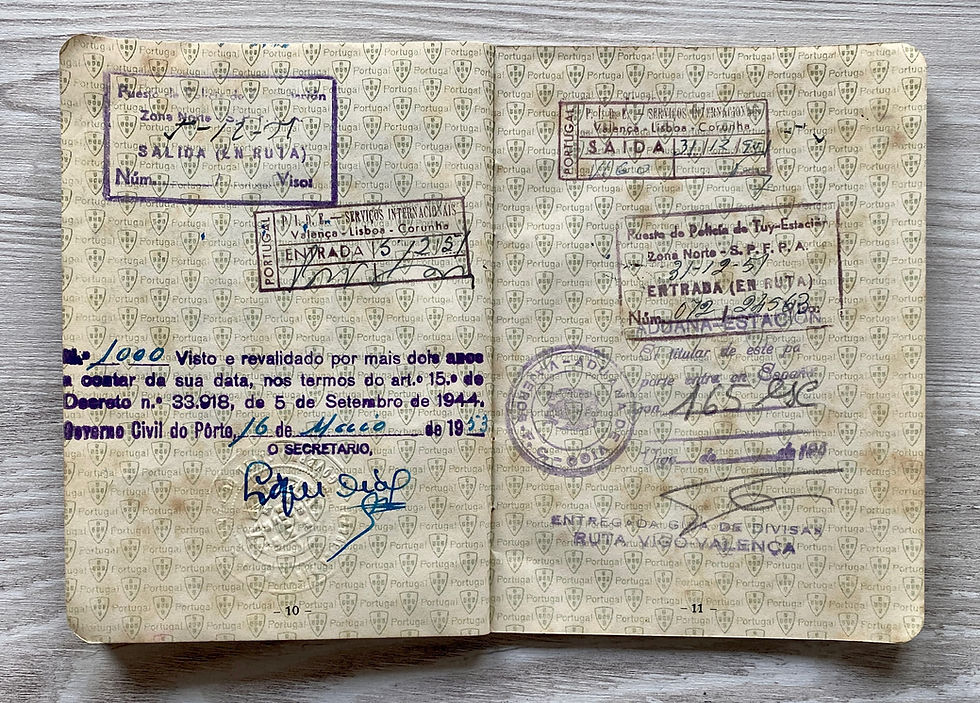 Zona Norte
7-12-51
SALIDA (EN RUTA)
Núm. Visol
PORTUGAL
P.I.D.E. - SERVIÇOS INTERNACIONAIS
Valença - Lisboa - Corunha
ENTRADA 5 12 51
N.º 1000 Visto e revalidado por mais dois anos
a contar da sua data, nos termos do art.º 15.º do
Decreto n.º 33.918, de 5 de Setembro de 1944.
Governo Civil do Pôrto, 16 de Maio de 1953
O SECRETARIO,
- 10 -
PORTUGAL
SERVIÇOS INTERNACIONAIS
Valença - Lisboa - Corunha
SAIDA 31 12
Puesto de Policía de Tuy-Estación
Zona Norte - S.P.F.P.A.
31-12-51
ENTRADA (EN RUTA)
Núm. 072
ADUANA-ESTACION
El titular de este pa
porte entra en España
con 165 esc
de de 19
ENTREGADA GUIA DE DIVISAS
RUTA VIGO-VALENÇA
- 11 -